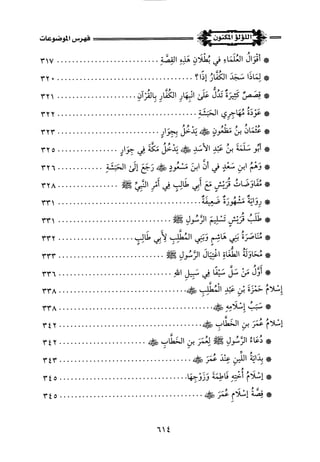 اللؤلؤ المكنون
فهرس الموضوعات
* أَقْوَالُ العُلَمَاءِ في بُطْلَانِ هَذِهِ القِصَّةِ ........ ٣١٧
* لِمَاذَا سَجَدَ الكُفَّارُ إِذًا؟ ........ ٣٢٠
* قِصَصٌ كَثِيرَةٌ تَدُلُّ عَلَى انْبِهَارِ الكُفَّارِ بِالقُرْآنِ ........ ٣٢١
* عَوْدَةُ مُهَاجِرِي الحَبَشَةِ ........ ٣٢٢
* عُثْمَانُ بنُ مَظْعُونٍ ﷺ يَدْخُلُ بِجِوَارٍ ........ ٣٢٣
* أَبُو سَلَمَةَ بنُ عَبْدِ الأَسَدِ ﷺ يَدْخُلُ مَكَّةَ في جِوَارٍ ........ ٣٢٥
* وَهْمُ ابنِ سَعْدٍ في أَنَّ ابنَ مَسْعُودٍ ﷺ رَجَعَ إِلَى الحَبَشَةِ ........ ٣٢٦
* مُفَاوَضَاتُ قُرَيْشٍ مَعَ أَبِي طَالِبٍ في أَمْرِ النَّبِيِّ ﷺ ........ ٣٢٨
* رِوَايَةٌ مَشْهُورَةٌ ضَعِيفَةٌ ........ ٣٣١
* طَلَبُ قُرَيْشٍ تَسْلِيمَ الرَّسُولِ ﷺ ........ ٣٣١
* مُنَاصَرَةُ بَنِي هَاشِمٍ وَبَنِي المُطَّلِبِ لِأَبِي طَالِبٍ ........ ٣٣٢
* مُحَاوَلَةُ الطُّغَاةِ اغْتِيَالَ الرَّسُولِ ﷺ ........ ٣٣٣
* أَوَّلُ مَنْ سَلَّ سَيْفًا في سَبِيلِ اللهِ ........ ٣٣٦
إِسْلَامُ حَمْزَةَ بْنِ عَبْدِ المُطَّلِبِ ........ ٣٣٨
* سَبَبُ إِسْلَامِهِ ........ ٣٣٨
إِسْلَامُ عُمَرَ بنِ الخَطَّابِ ........ ٣٤٢
* دُعَاءُ الرَّسُولِ ﷺ لِعُمَرَ بنِ الخَطَّابِ ........ ٣٤٢
* بِدَايَةُ اللِّينِ عِنْدَ عُمَرَ ........ ٣٤٣
* إِسْلَامُ أُخْتِهِ فَاطِمَةَ وَزَوْجِهَا ........ ٣٤٥
* قِصَّةُ إِسْلَامِ عُمَرَ ........ ٣٤٥
٦١٤